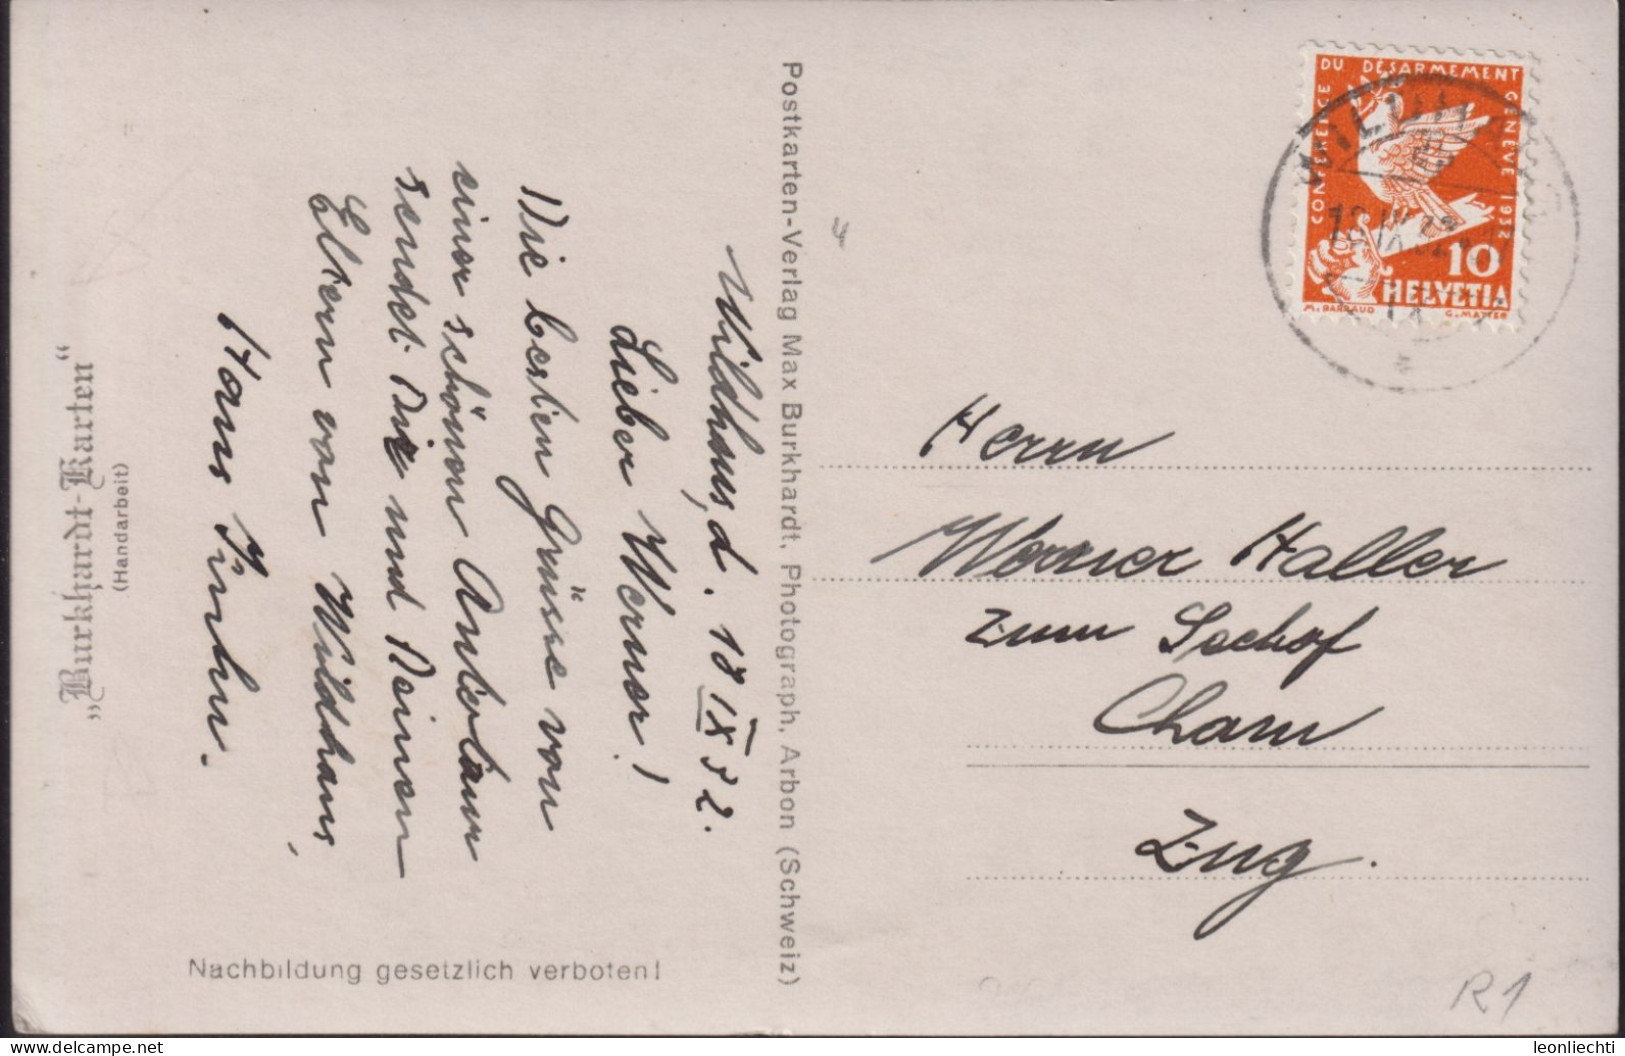 „Burkhardt-Karten“
(Handarbeit)
Wildhaus, d. 18 IX 32.
Lieber Werner!
Die besten Grüsse von
einer schönen Autotour
sendet Dir und Deinen
Eltern von Wildhaus,
Hans
Nachbildung gesetzlich verboten!
Postkarten-Verlag Max Burkhardt, Photograph, Arbon (Schweiz)
4
CONFERENCE DU DESARMEMENT GENÈVE 1932
10
HELVETIA
M. BARRAUD G. MATTER
WILDHAUS
18.IX.32
Herrn
Werner Haller
zum Seehof
Cham
Zug.
R1
delcampe.net
leonliechti